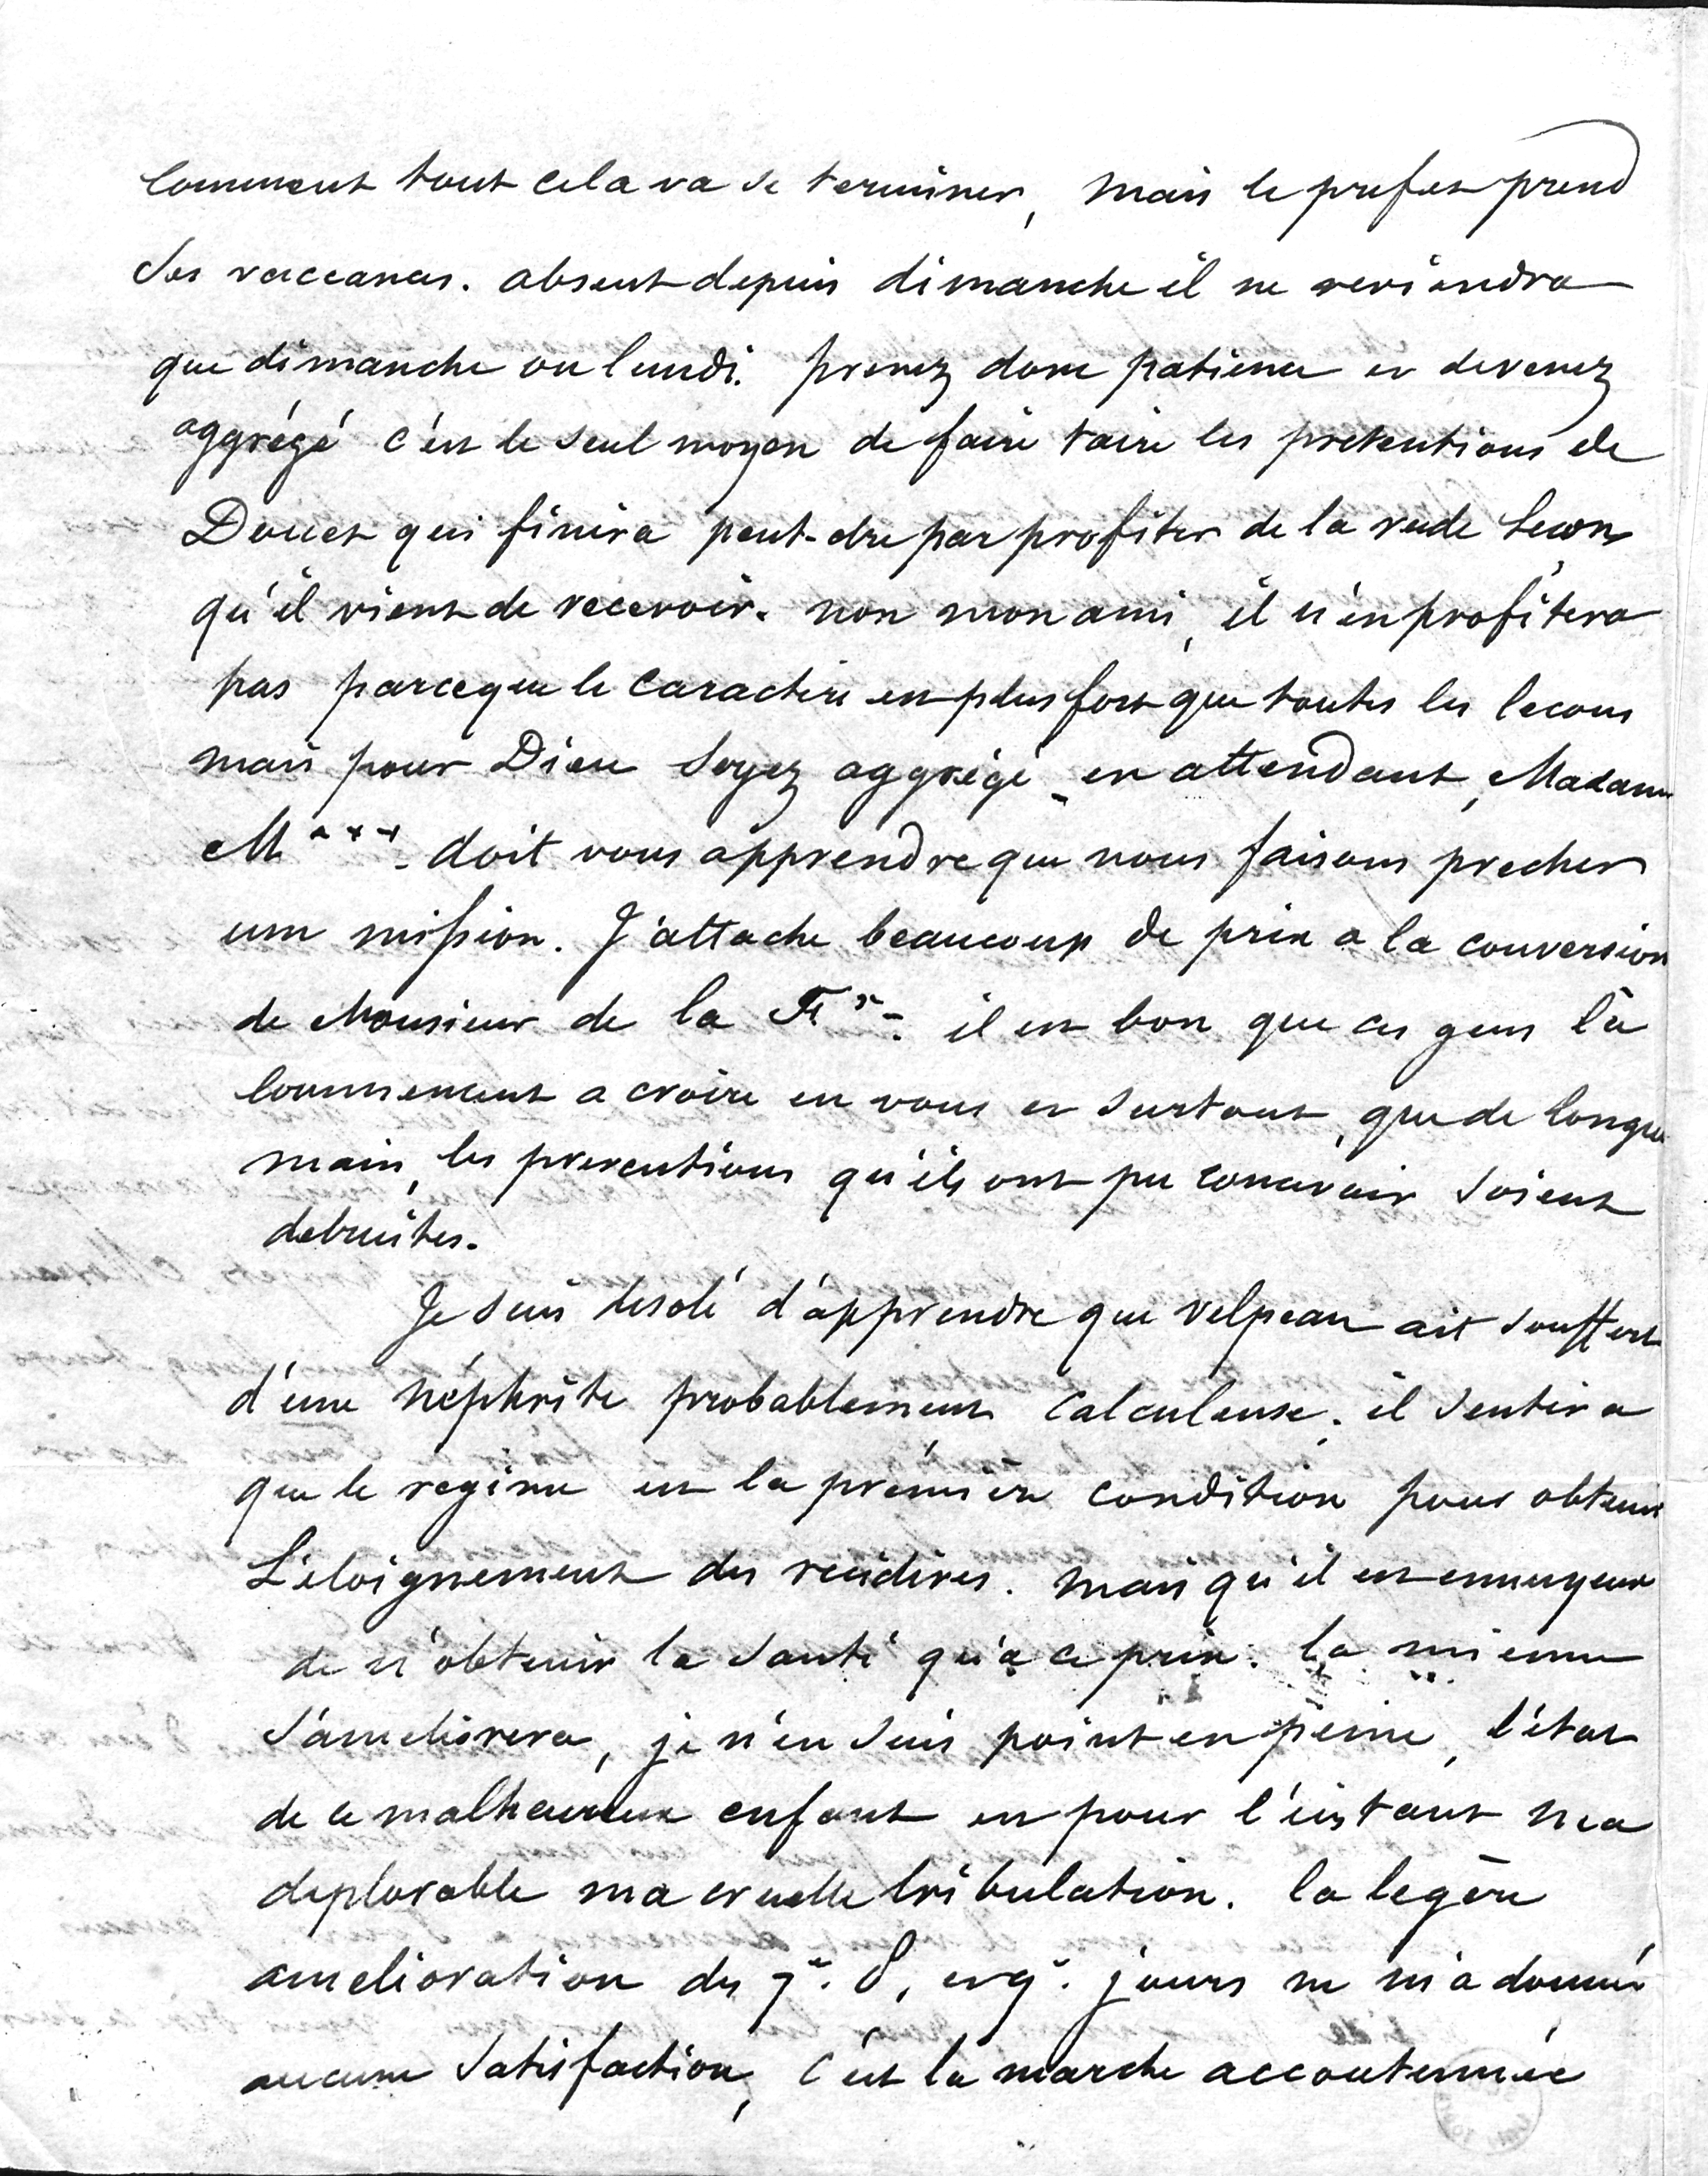 comment tout cela va se terminer, mais le prefet prend
ses vaccances. absent depuis dimanche il ne reviendra
que dimanche ou lundi. prenez donc patience et devenez
aggrégé c'est le seul moyen de faire taire les pretentions de
Doucet qui finira peut-etre par profiter de la rude lecon
qu'il vient de recevoir. non mon ami, il n'en profitera
pas parceque le caractere est plus fort que toutes les lecons
mais pour Dieu soyez aggrégé - en attendant, Madame
M*** doit vous apprendre que nous faisons precher
une mission. J'attache beaucoup de prix a la conversion
de Monsieur de la il est bon que ces gens là
commencent a croire en vous et surtout, que de longue
main, les preventions qu'ils ont pu concevoir soient
detruites.
Je suis desolé d'apprendre que velpeau ait souffert
d'une néphrite probablement calculeuse. il sentira
que le regime est la première condition pour obtenir
L'éloignement des recidives. mais qu'il est ennuyeux
de n'obtenir la santé qu'a ce prix. la mienne
s'ameliorera, je n'en suis point en peine, l'état
de ce malheureux enfant est pour l'instant ma
deplorable ma cruelle tribulation. la legère
amelioration des 7e. 8. et 9e. jours ne m'a donné
aucune satisfaction, c'est la marche accoutumée